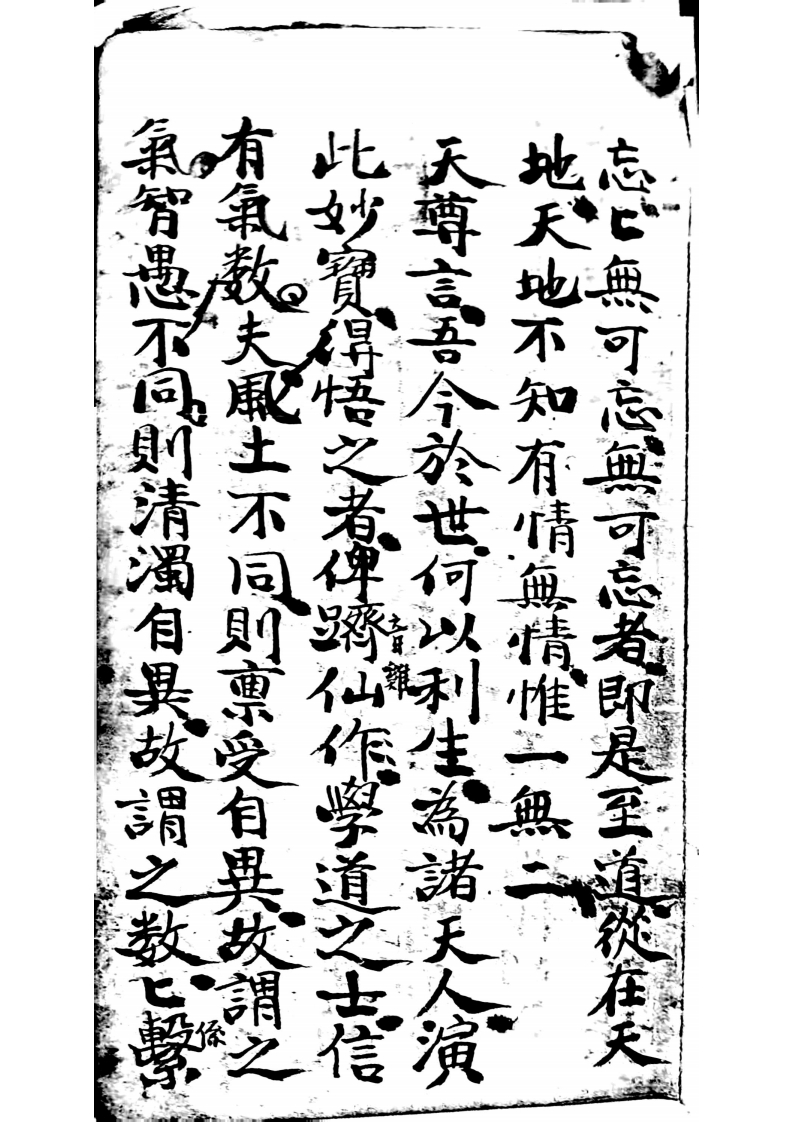 忘匕無可忘無可忘者即是至道從在天
地天地不知有情無情惟一無二
天尊言吾今於世何以利生為諸天人演
此妙寶得悟之者俾躋仙作學道之士信
音雞
有氣数夫風土不同則禀受自異故謂之
氣智愚不同則清濁自異故謂之数匕繫
係